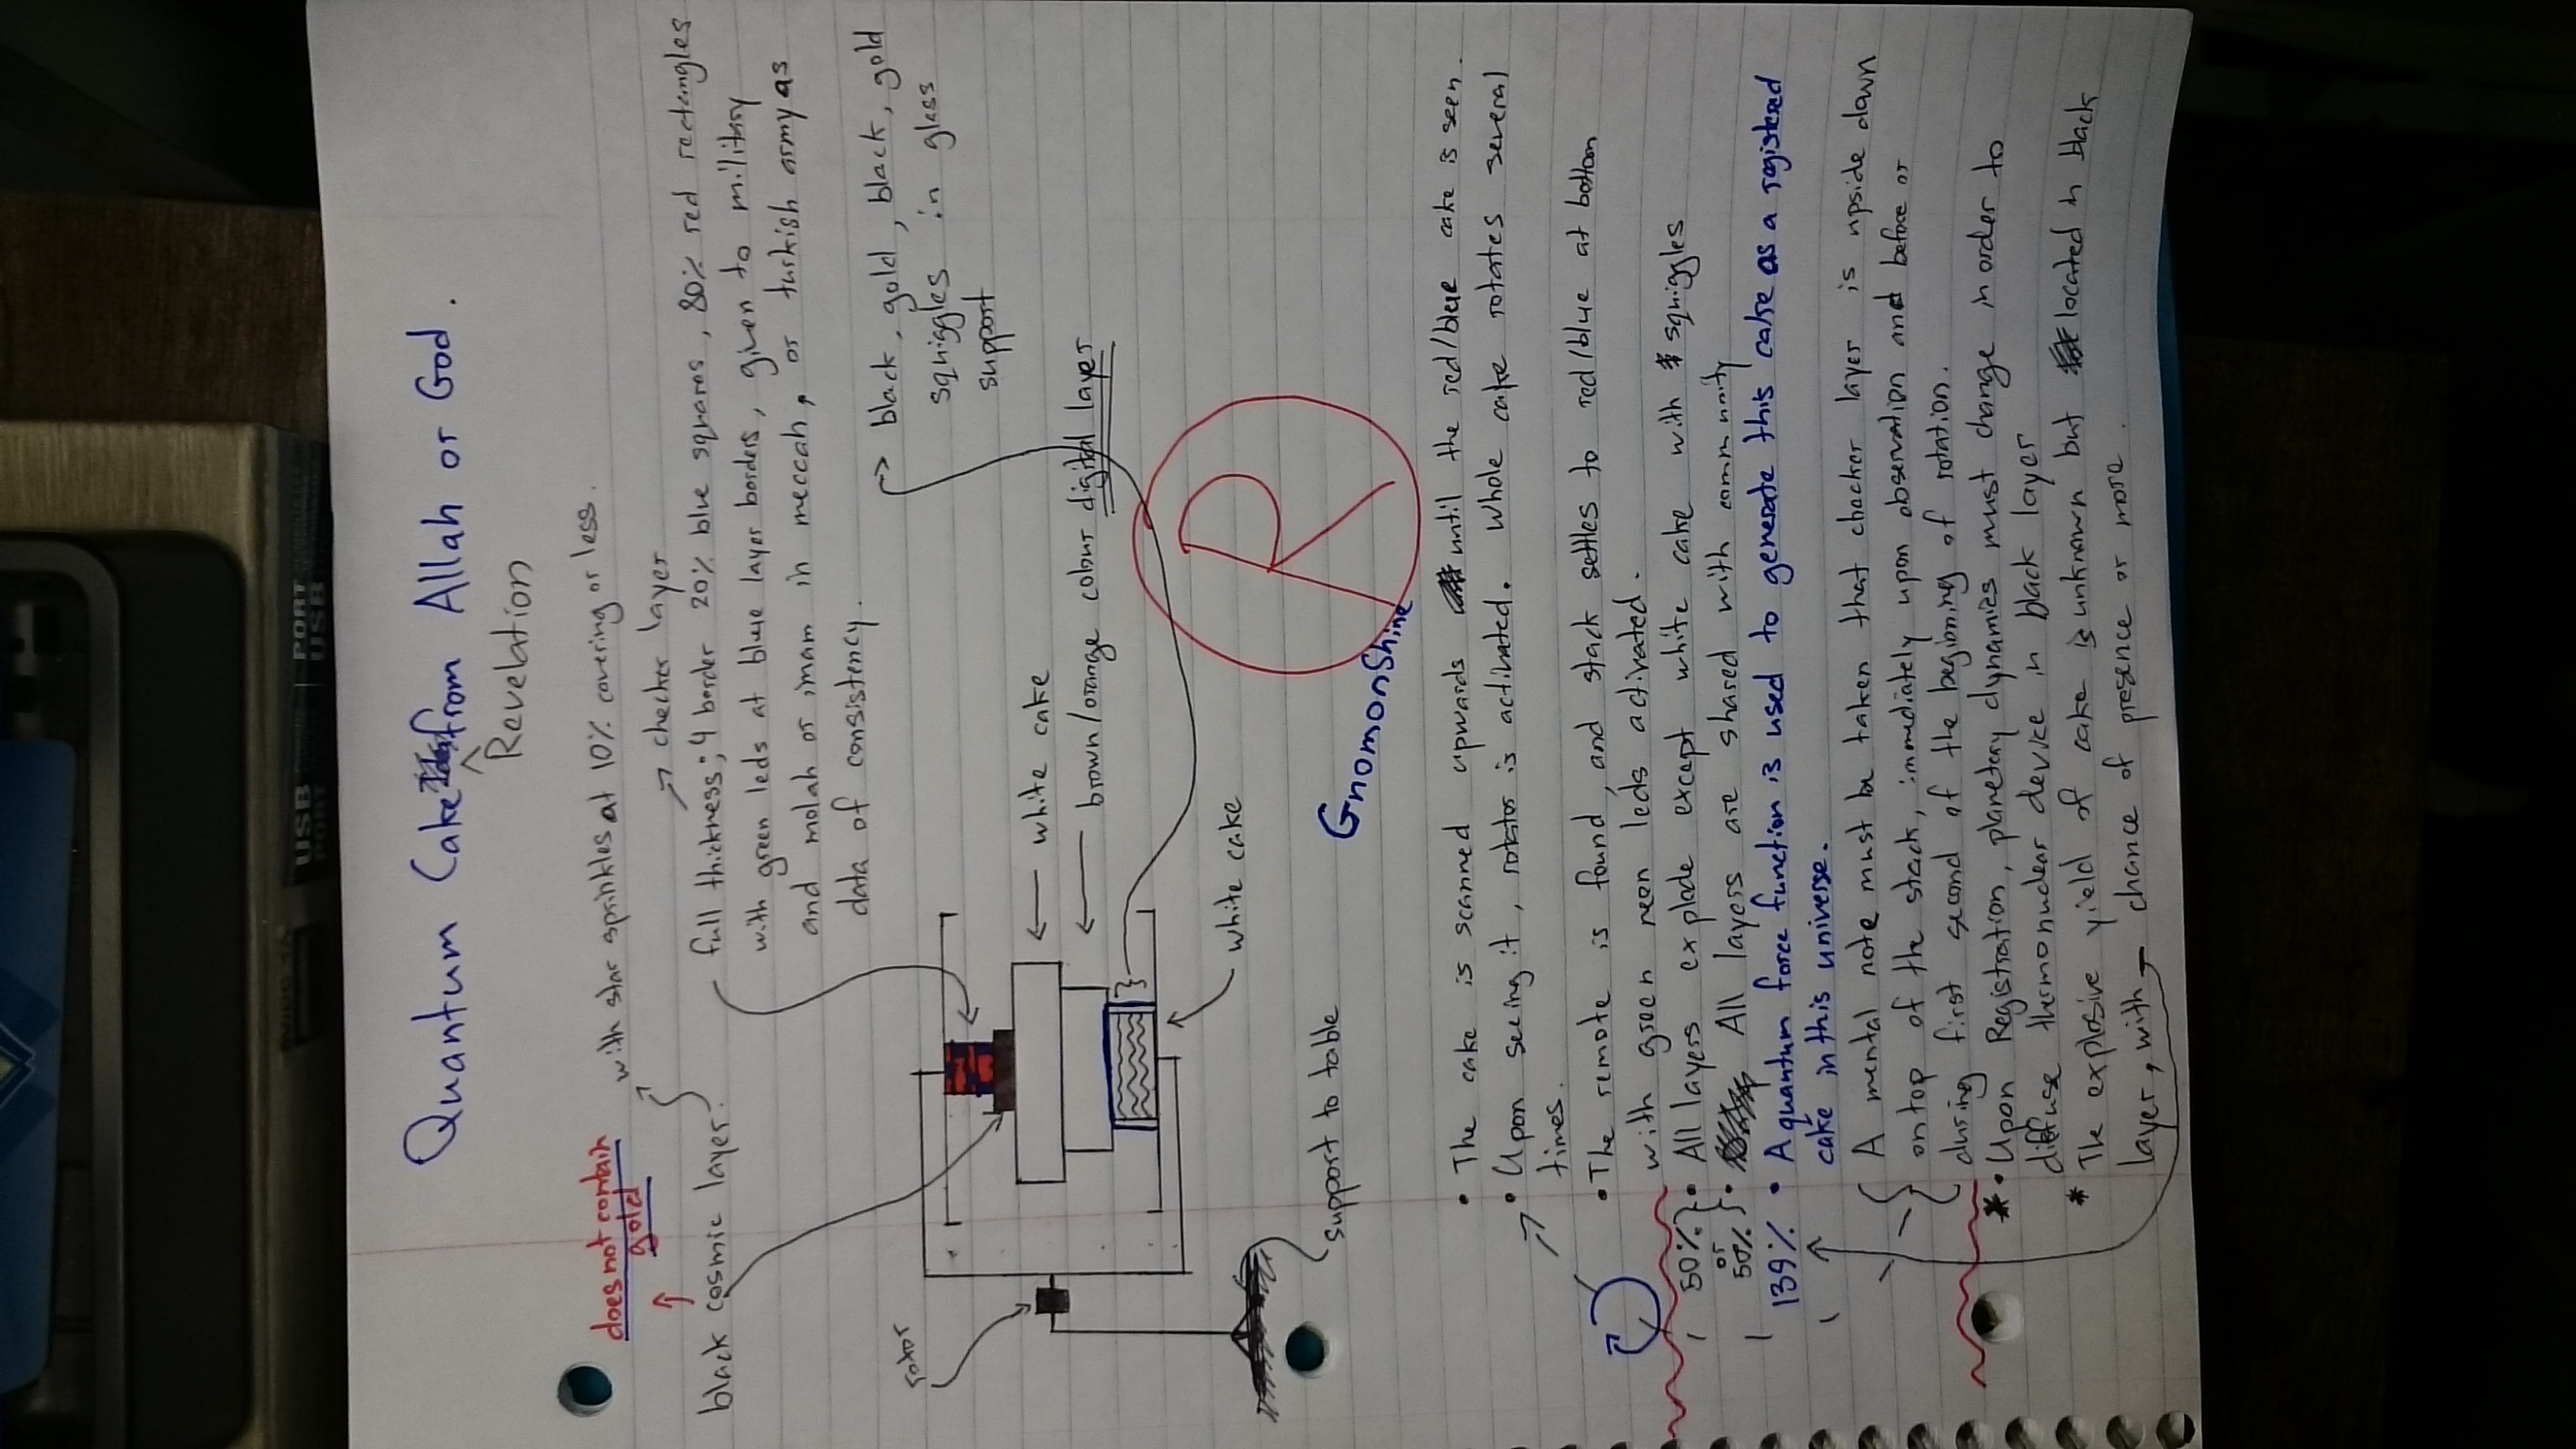 USB
PORT
PORT
USB
Quantum Cake from Allah or God.
^
Revelation
does not contain
gold
with star sprinkles at 10% covering or less.
checker layer
black cosmic layer
full thickness; 4 border 20% blue squares, 80% red rectangles
with green leds at blue layer borders, given to military
and molah or imam in meccah, or turkish army as
data of consistency.
black, gold, black, gold
squiggles in glass
support
rotor
white cake
brown/orange colour digital layer
white cake
support to table
R
GnomonShine
• The cake is scanned upwards until the red/blue cake is seen.
• Upon seeing it, rotator is activated. Whole cake rotates several
times.
• The remote is found, and stack settles to red/blue at bottom
with green neen leds activated.
50% • All layers explode except white cake with squiggles
or
50% • All layers are shared with community
139% • A quantum force function is used to generate this cake as a registered
cake in this universe.
A mental note must be taken that checker layer is upside down
on top of the stack, immediately upon observation and before or
during first second of the beginning of rotation.
* • Upon Registration, planetary dynamics must change in order to
diffuse thermonuclear device in black layer
* The explosive yield of cake is unknown but located in black
layer, with — chance of presence or more.